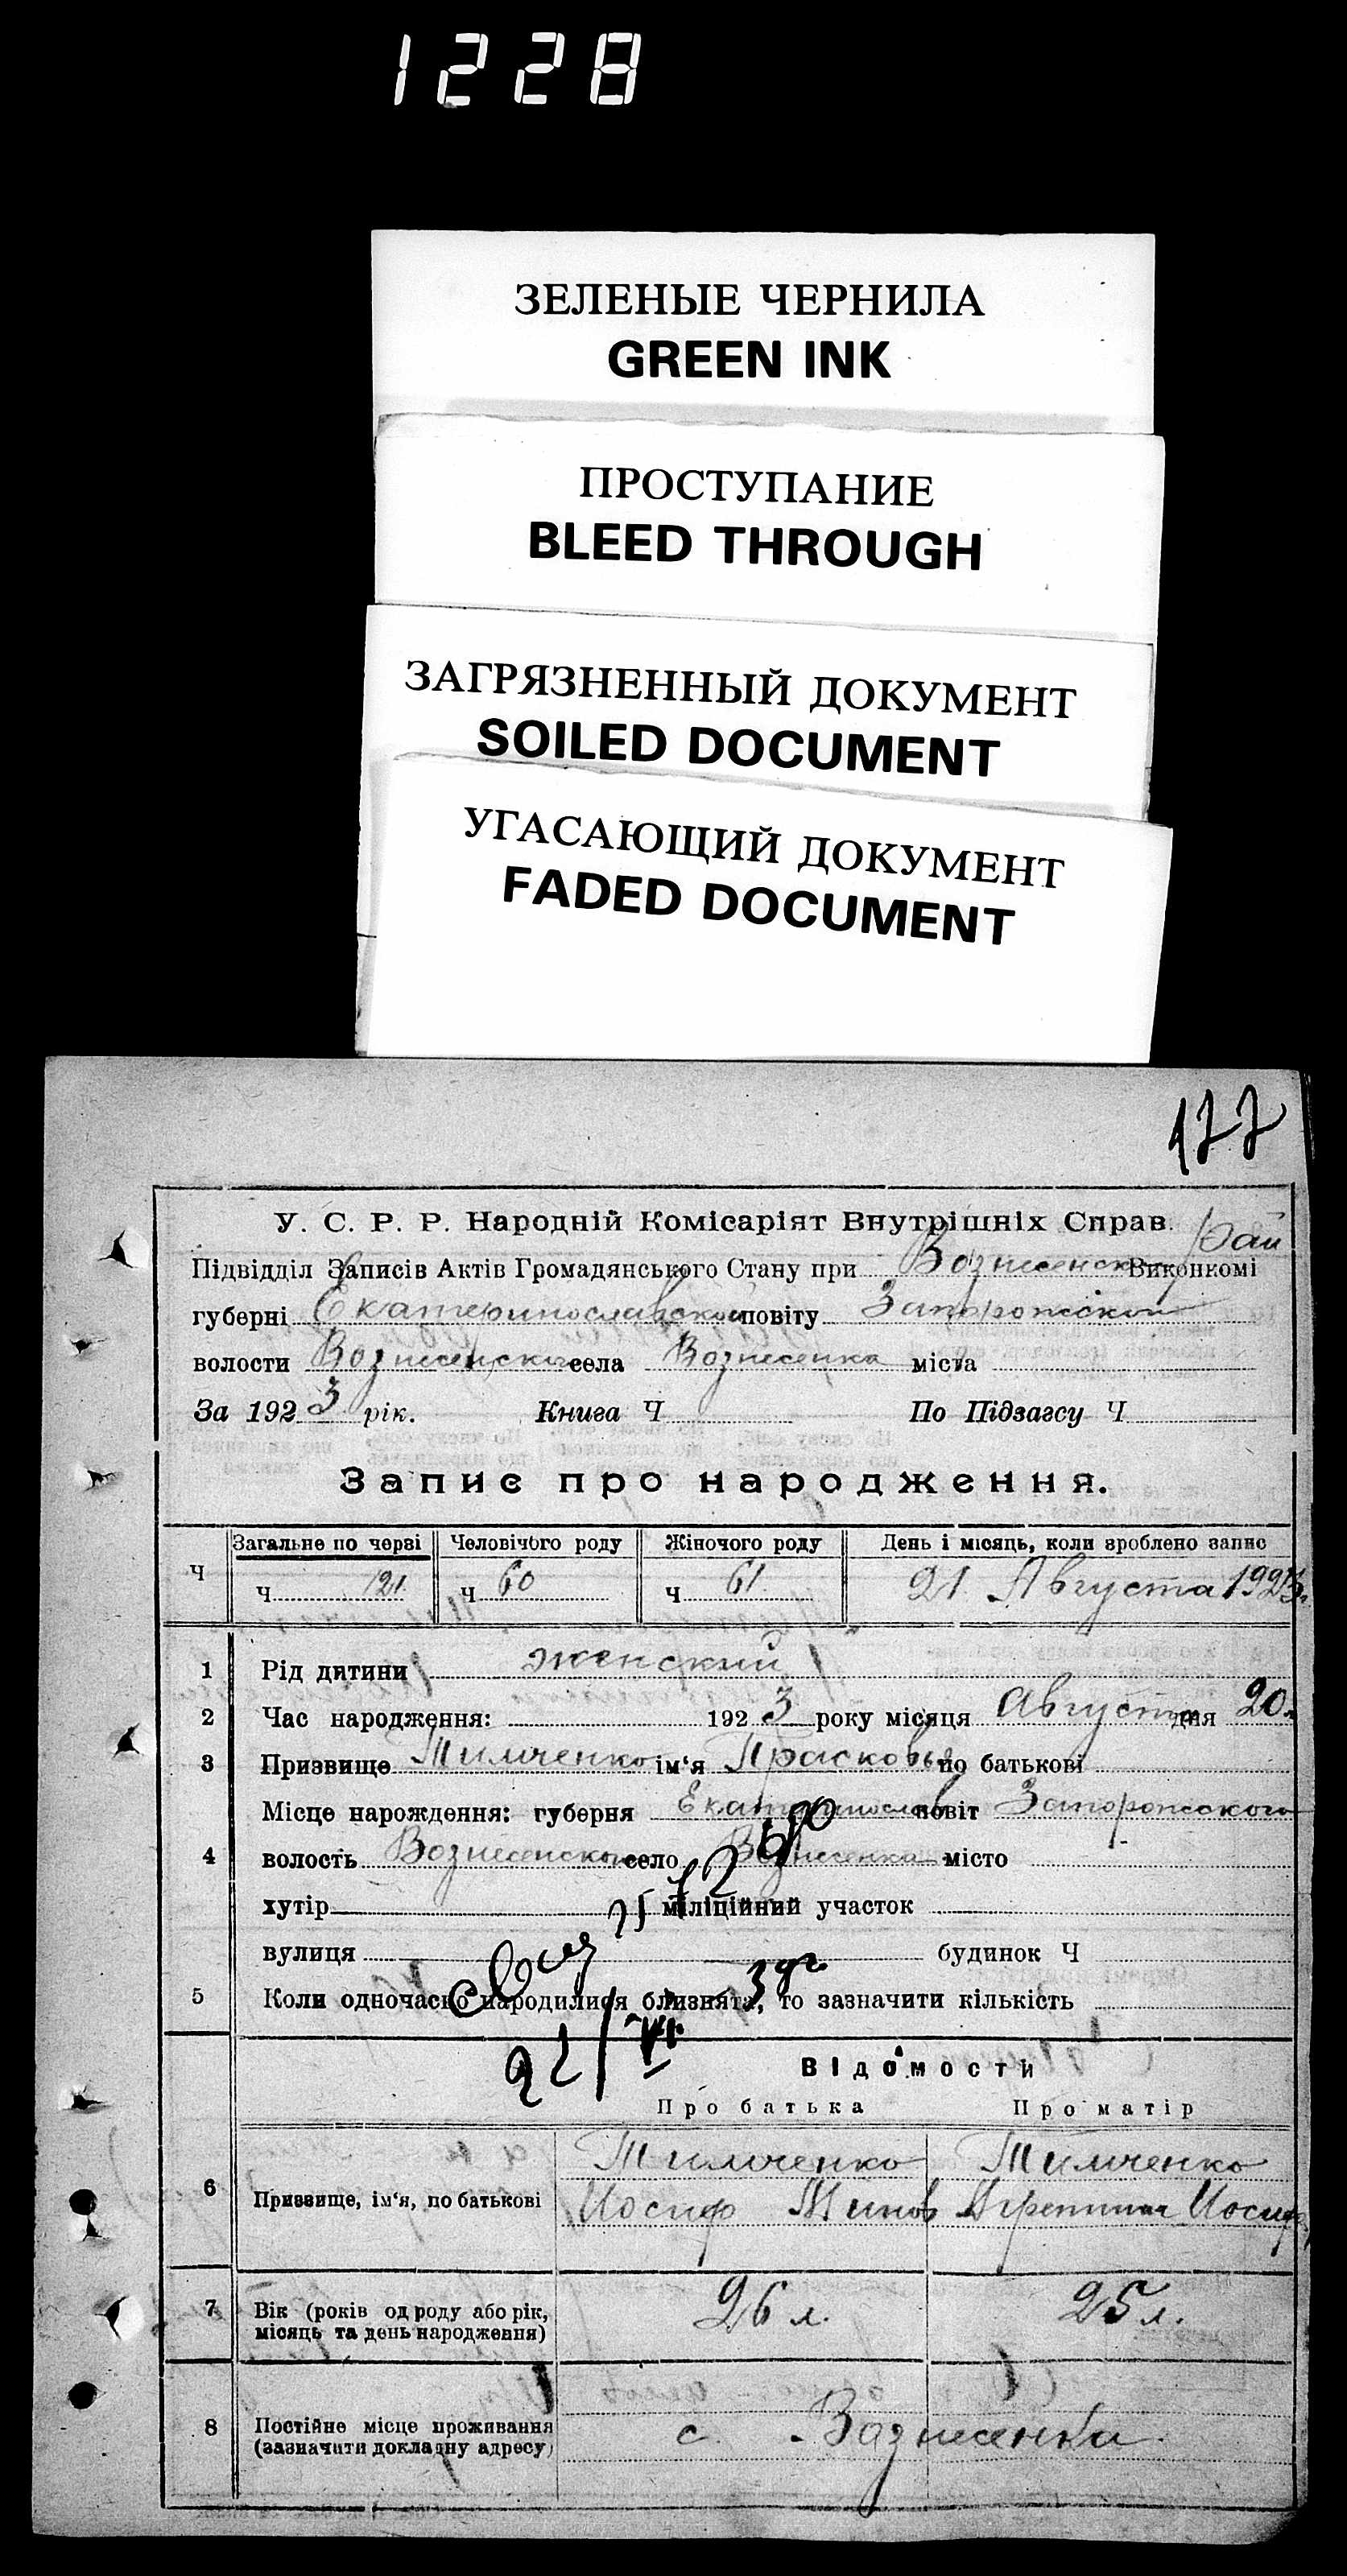 1228
ЗЕЛЕНЫЕ ЧЕРНИЛА
GREEN INK
ПРОСТУПАНИЕ
BLEED THROUGH
ЗАГРЯЗНЕННЫЙ ДОКУМЕНТ
SOILED DOCUMENT
УГАСАЮЩИЙ ДОКУМЕНТ
FADED DOCUMENT
177
У. С. Р. Р. Народній Комісаріят Внутрішніх Справ.
Підвідділ Записів Актів Громадянського Стану при Вознесенск Рай Виконкомі
губерні Екатеринославской повіту Запорожской
волости Вознесенской села Вознесенка міста
За 1923 рік. Книга Ч По Підзагсу Ч
Запис про народження.
Ч Загальне по черзі Человічого роду Жіночого роду День і місяць, коли зроблено запис
Ч 121 Ч 60 Ч 61 21 Августа 1923 г.
1 Рід дитини женский
2 Час народження: 1923 року місяця Августа дня 20
3 Призвище Тимченко ім'я Прасковья по батькові
Місце нарождення: губерня Екатеринослав повіт Запорожского
4 волость Вознесенской село Вознесенка місто
хутір міліційний участок
вулиця будинок Ч
5 Коли одночасно народилися близнята, то зазначити кількість
Відомости
Про батька Про матір
Тимченко Тимченко
6 Призвище, ім'я, по батькові Иосиф Агрепина Иосиф
7 Вік (років од роду або рік, місяць та день народження) 26 л. 25 л.
8 Постійне місце проживання (зазначити докладну адресу) с. Вознесенка